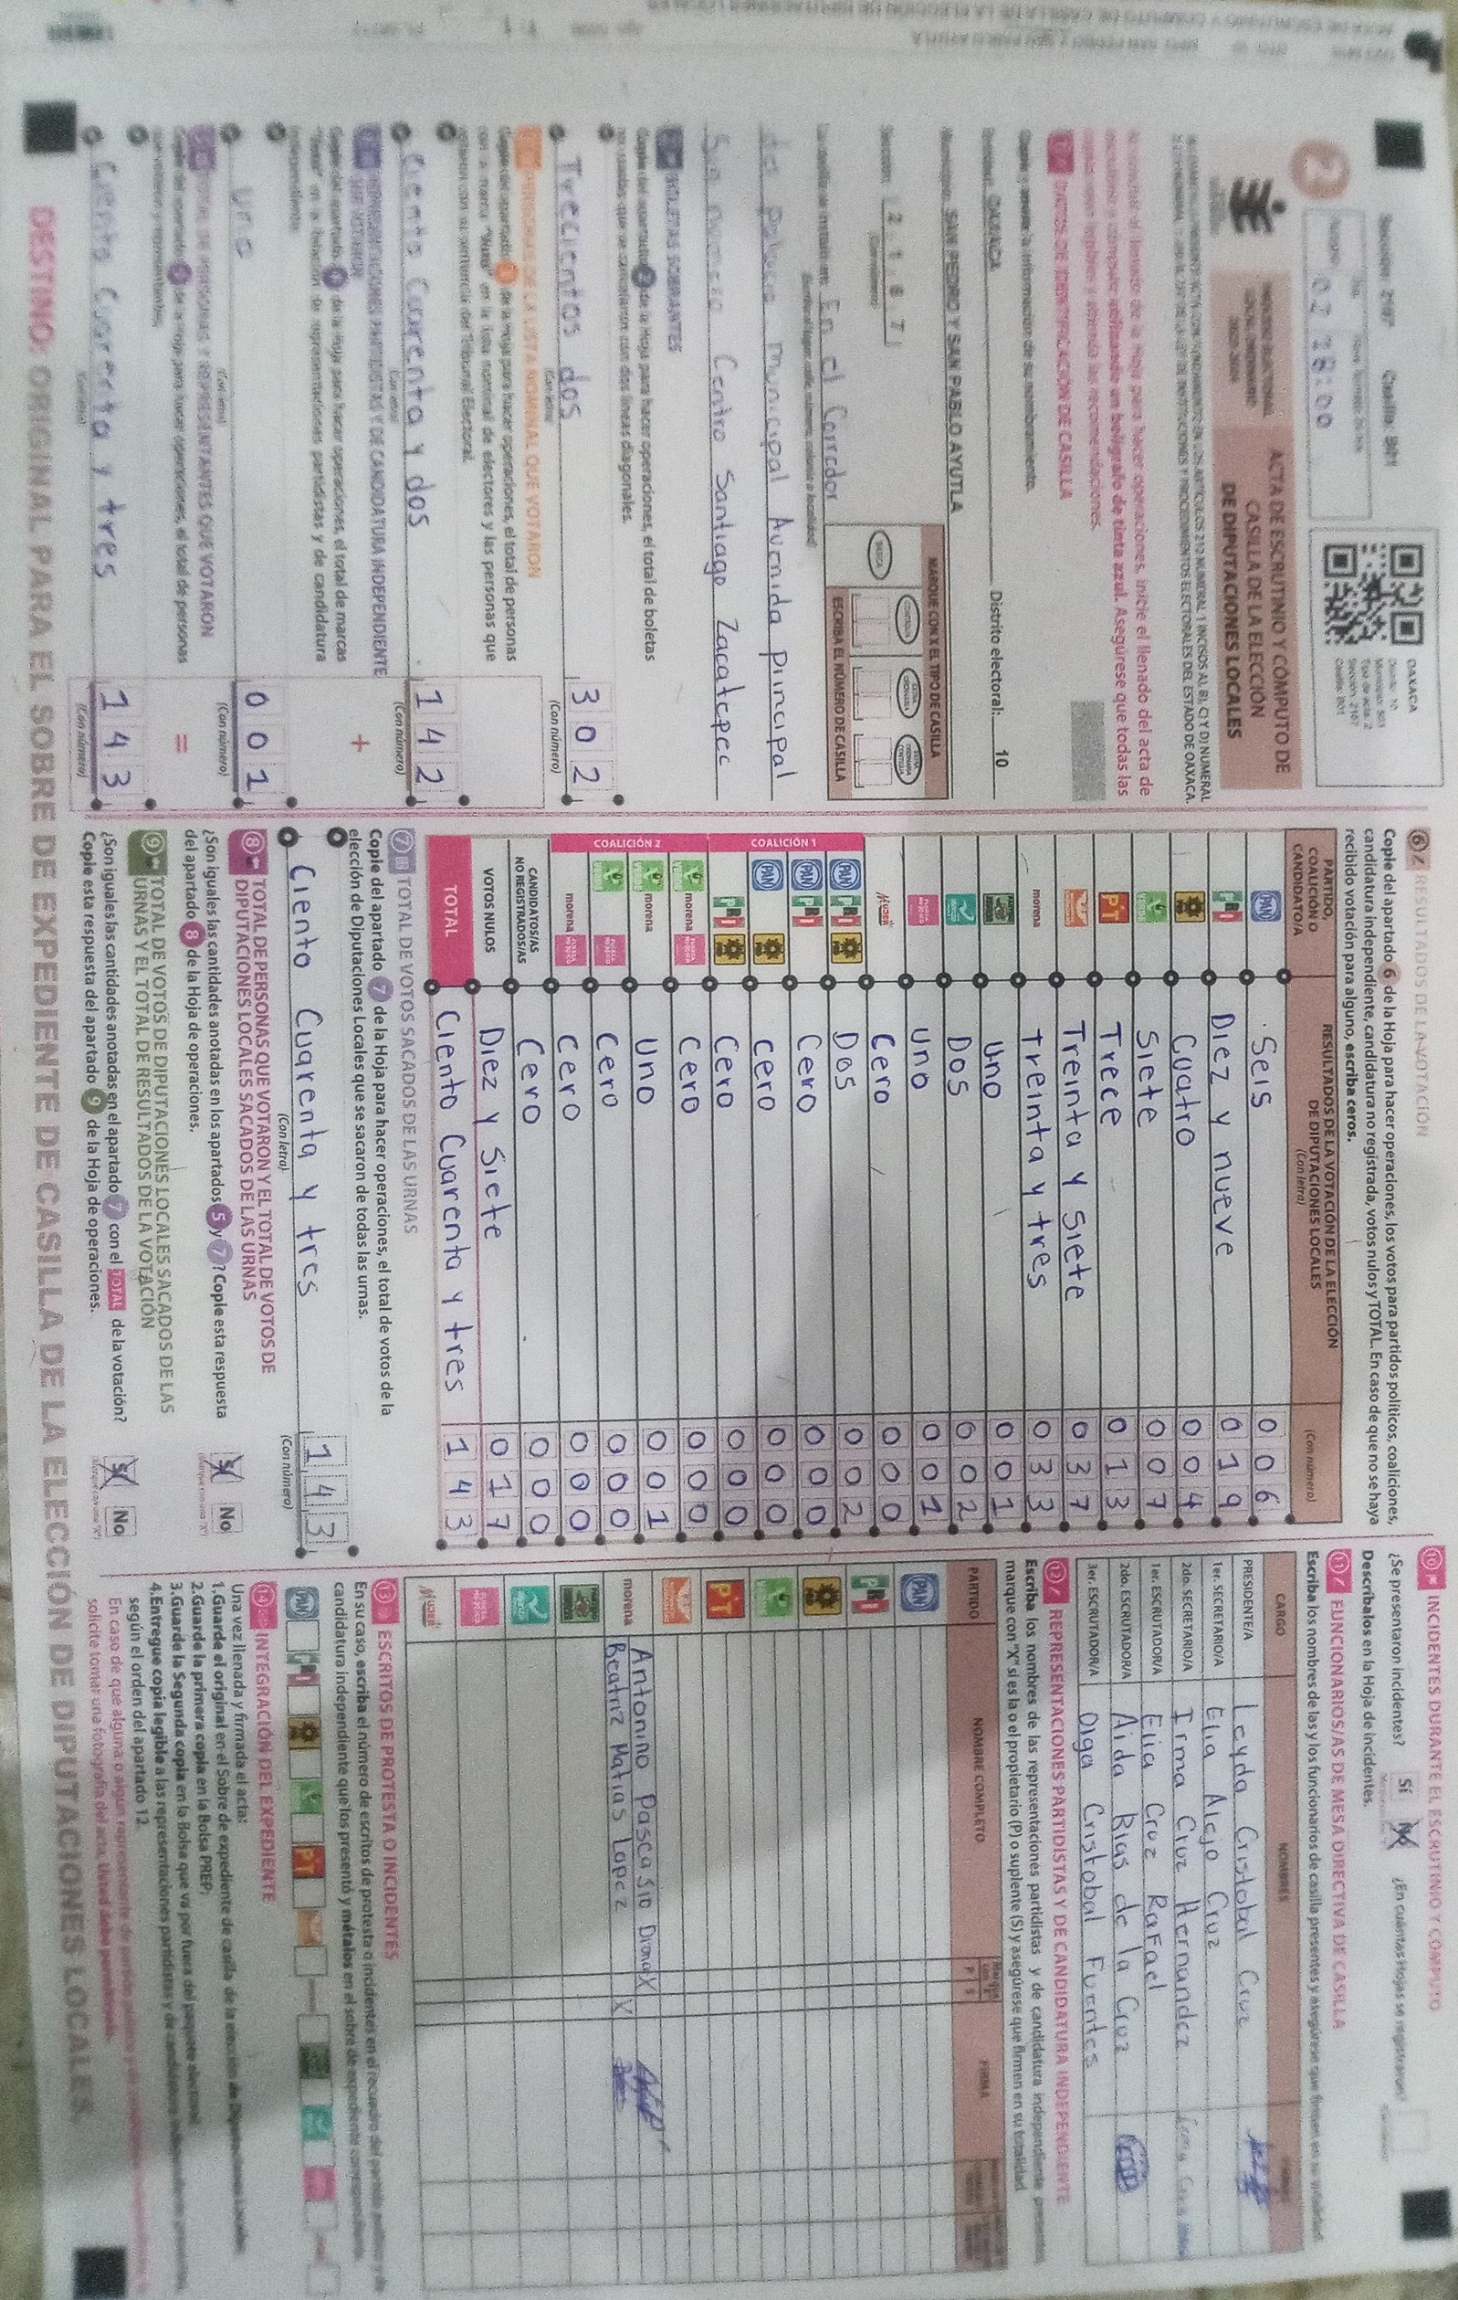 Sección: 2167 Casilla: B01
OAXACA
Distrito: 10
Tipo de acta: 2
Sección: 2167
Casilla: B01
2
02 18:00
ACTA DE ESCRUTINIO Y CÓMPUTO DE
CASILLA DE LA ELECCIÓN
DE DIPUTACIONES LOCALES
escrutinio y cómputo utilizando un bolígrafo de tinta azul. Asegúrese que todas las
DATOS DE IDENTIFICACIÓN DE CASILLA
Copie y anote la información de su nombramiento.
OAXACA Distrito electoral: 10
Municipio: SAN PEDRO Y SAN PABLO AYUTLA
Sección: 2 1 6 7
MARQUE CON X EL TIPO DE CASILLA
ESCRIBA EL NÚMERO DE CASILLA
En el Corredor
del palacio municipal Avenida Principal
Sin numero Centro Santiago Zacatepec
BOLETAS SOBRANTES
Copie del apartado 2 de la Hoja para hacer operaciones, el total de boletas
no usadas que se cancelaron con dos líneas diagonales.
Trecientos dos 3 0 2
(Con letra) (Con número)
PERSONAS DE LA LISTA NOMINAL QUE VOTARON
Copie del apartado 3 de la Hoja para hacer operaciones, el total de personas
con la marca "Votó" en la lista nominal de electores y las personas que
votaron con su sentencia del Tribunal Electoral.
Ciento Cuarenta y dos 1 4 2
(Con letra) (Con número)
+
REPRESENTACIONES PARTIDISTAS Y DE CANDIDATURA INDEPENDIENTE
QUE VOTARON
Copie del apartado 4 de la Hoja para hacer operaciones, el total de marcas
"Votó" en la relación de representaciones partidistas y de candidatura
independiente.
uno 0 0 1
(Con letra) (Con número)
=
TOTAL DE PERSONAS Y REPRESENTANTES QUE VOTARON
Copie del apartado 5 de la Hoja para hacer operaciones, el total de personas
que votaron y representantes.
Ciento Cuarenta y tres 1 4 3
(Con letra) (Con número)
6 RESULTADOS DE LA VOTACIÓN
Copie del apartado 6 de la Hoja para hacer operaciones, los votos para partidos políticos, coaliciones,
candidatura independiente, candidatura no registrada, votos nulos y TOTAL. En caso de que no se haya
recibido votación para alguno, escriba ceros.
PARTIDO,
COALICIÓN O
CANDIDATO/A
RESULTADOS DE LA VOTACIÓN DE LA ELECCIÓN
DE DIPUTACIONES LOCALES
(Con letra) (Con número)
PAN Seis 0 0 6
PRI Diez y nueve 0 1 9
PRD Cuatro 0 0 4
Siete 0 0 7
PT Trece 0 1 3
Treinta y Siete 0 3 7
morena treinta y tres 0 3 3
uno 0 0 1
Dos 0 0 2
uno 0 0 1
Cero 0 0 0
COALICIÓN 1
PAN PRI PRD Dos 0 0 2
PAN PRI Cero 0 0 0
PAN PRD cero 0 0 0
PRI PRD Cero 0 0 0
COALICIÓN 2
morena Cero 0 0 0
morena uno 0 0 1
Cero 0 0 0
morena cero 0 0 0
CANDIDATOS/AS
NO REGISTRADOS/AS Cero 0 0 0
VOTOS NULOS Diez y Siete 0 1 7
TOTAL Ciento Cuarenta y tres 1 4 3
7 TOTAL DE VOTOS SACADOS DE LAS URNAS
Copie del apartado 7 de la Hoja para hacer operaciones, el total de votos de la
elección de Diputaciones Locales que se sacaron de todas las urnas.
Ciento Cuarenta y tres 1 4 3
(Con letra) (Con número)
8 TOTAL DE PERSONAS QUE VOTARON Y EL TOTAL DE VOTOS DE
DIPUTACIONES LOCALES SACADOS DE LAS URNAS
¿Son iguales las cantidades anotadas en los apartados 5 y 7? Copie esta respuesta
del apartado 8 de la Hoja de operaciones.
Sí No
9 TOTAL DE VOTOS DE DIPUTACIONES LOCALES SACADOS DE LAS
URNAS Y EL TOTAL DE RESULTADOS DE LA VOTACIÓN
¿Son iguales las cantidades anotadas en el apartado 7 con el TOTAL de la votación?
Copie esta respuesta del apartado 9 de la Hoja de operaciones.
Sí No
10 INCIDENTES DURANTE EL ESCRUTINIO Y CÓMPUTO
¿Se presentaron incidentes? Sí No ¿En cuántas Hojas se registraron?
Descríbalos en la Hoja de incidentes.
11 FUNCIONARIOS/AS DE MESA DIRECTIVA DE CASILLA
Escriba los nombres de las y los funcionarios de casilla presentes y asegúrese que firmen en su totalidad.
CARGO NOMBRES
PRESIDENTE/A Leyda Cristobal Cruz
1er. SECRETARIO/A Elia Alejo Cruz
2do. SECRETARIO/A Irma Cruz Hernandez
1er. ESCRUTADOR/A Elia Cruz Rafael
2do. ESCRUTADOR/A Aida Blas de la Cruz
3er. ESCRUTADOR/A Olga Cristobal Fuentes
12 REPRESENTACIONES PARTIDISTAS Y DE CANDIDATURA INDEPENDIENTE
Escriba los nombres de las representaciones partidistas y de candidatura independiente presentes,
marque con "X" si es la o el propietario (P) o suplente (S) y asegúrese que firmen en su totalidad.
PARTIDO NOMBRE COMPLETO P S FIRMA
PAN
PRI
PRD
PT
morena Antonino Pascasio X
Beatriz Matias Lopez X
13 ESCRITOS DE PROTESTA O INCIDENTES
En su caso, escriba el número de escritos de protesta o incidentes en el recuadro del partido político y de
candidatura independiente que los presentó y métalos en el sobre de expediente correspondiente.
PAN PRI PRD PT
14 INTEGRACIÓN DEL EXPEDIENTE
Una vez llenada y firmada el acta:
1.Guarde el original en el Sobre de expediente de casilla de la elección de Diputaciones Locales.
2.Guarde la primera copia en la Bolsa PREP.
3.Guarde la Segunda copia en la Bolsa que va por fuera del paquete electoral.
4.Entregue copia legible a las representaciones partidistas y de candidatura independiente presentes,
según el orden del apartado 12.
DESTINO: ORIGINAL PARA EL SOBRE DE EXPEDIENTE DE CASILLA DE LA ELECCIÓN DE DIPUTACIONES LOCALES.